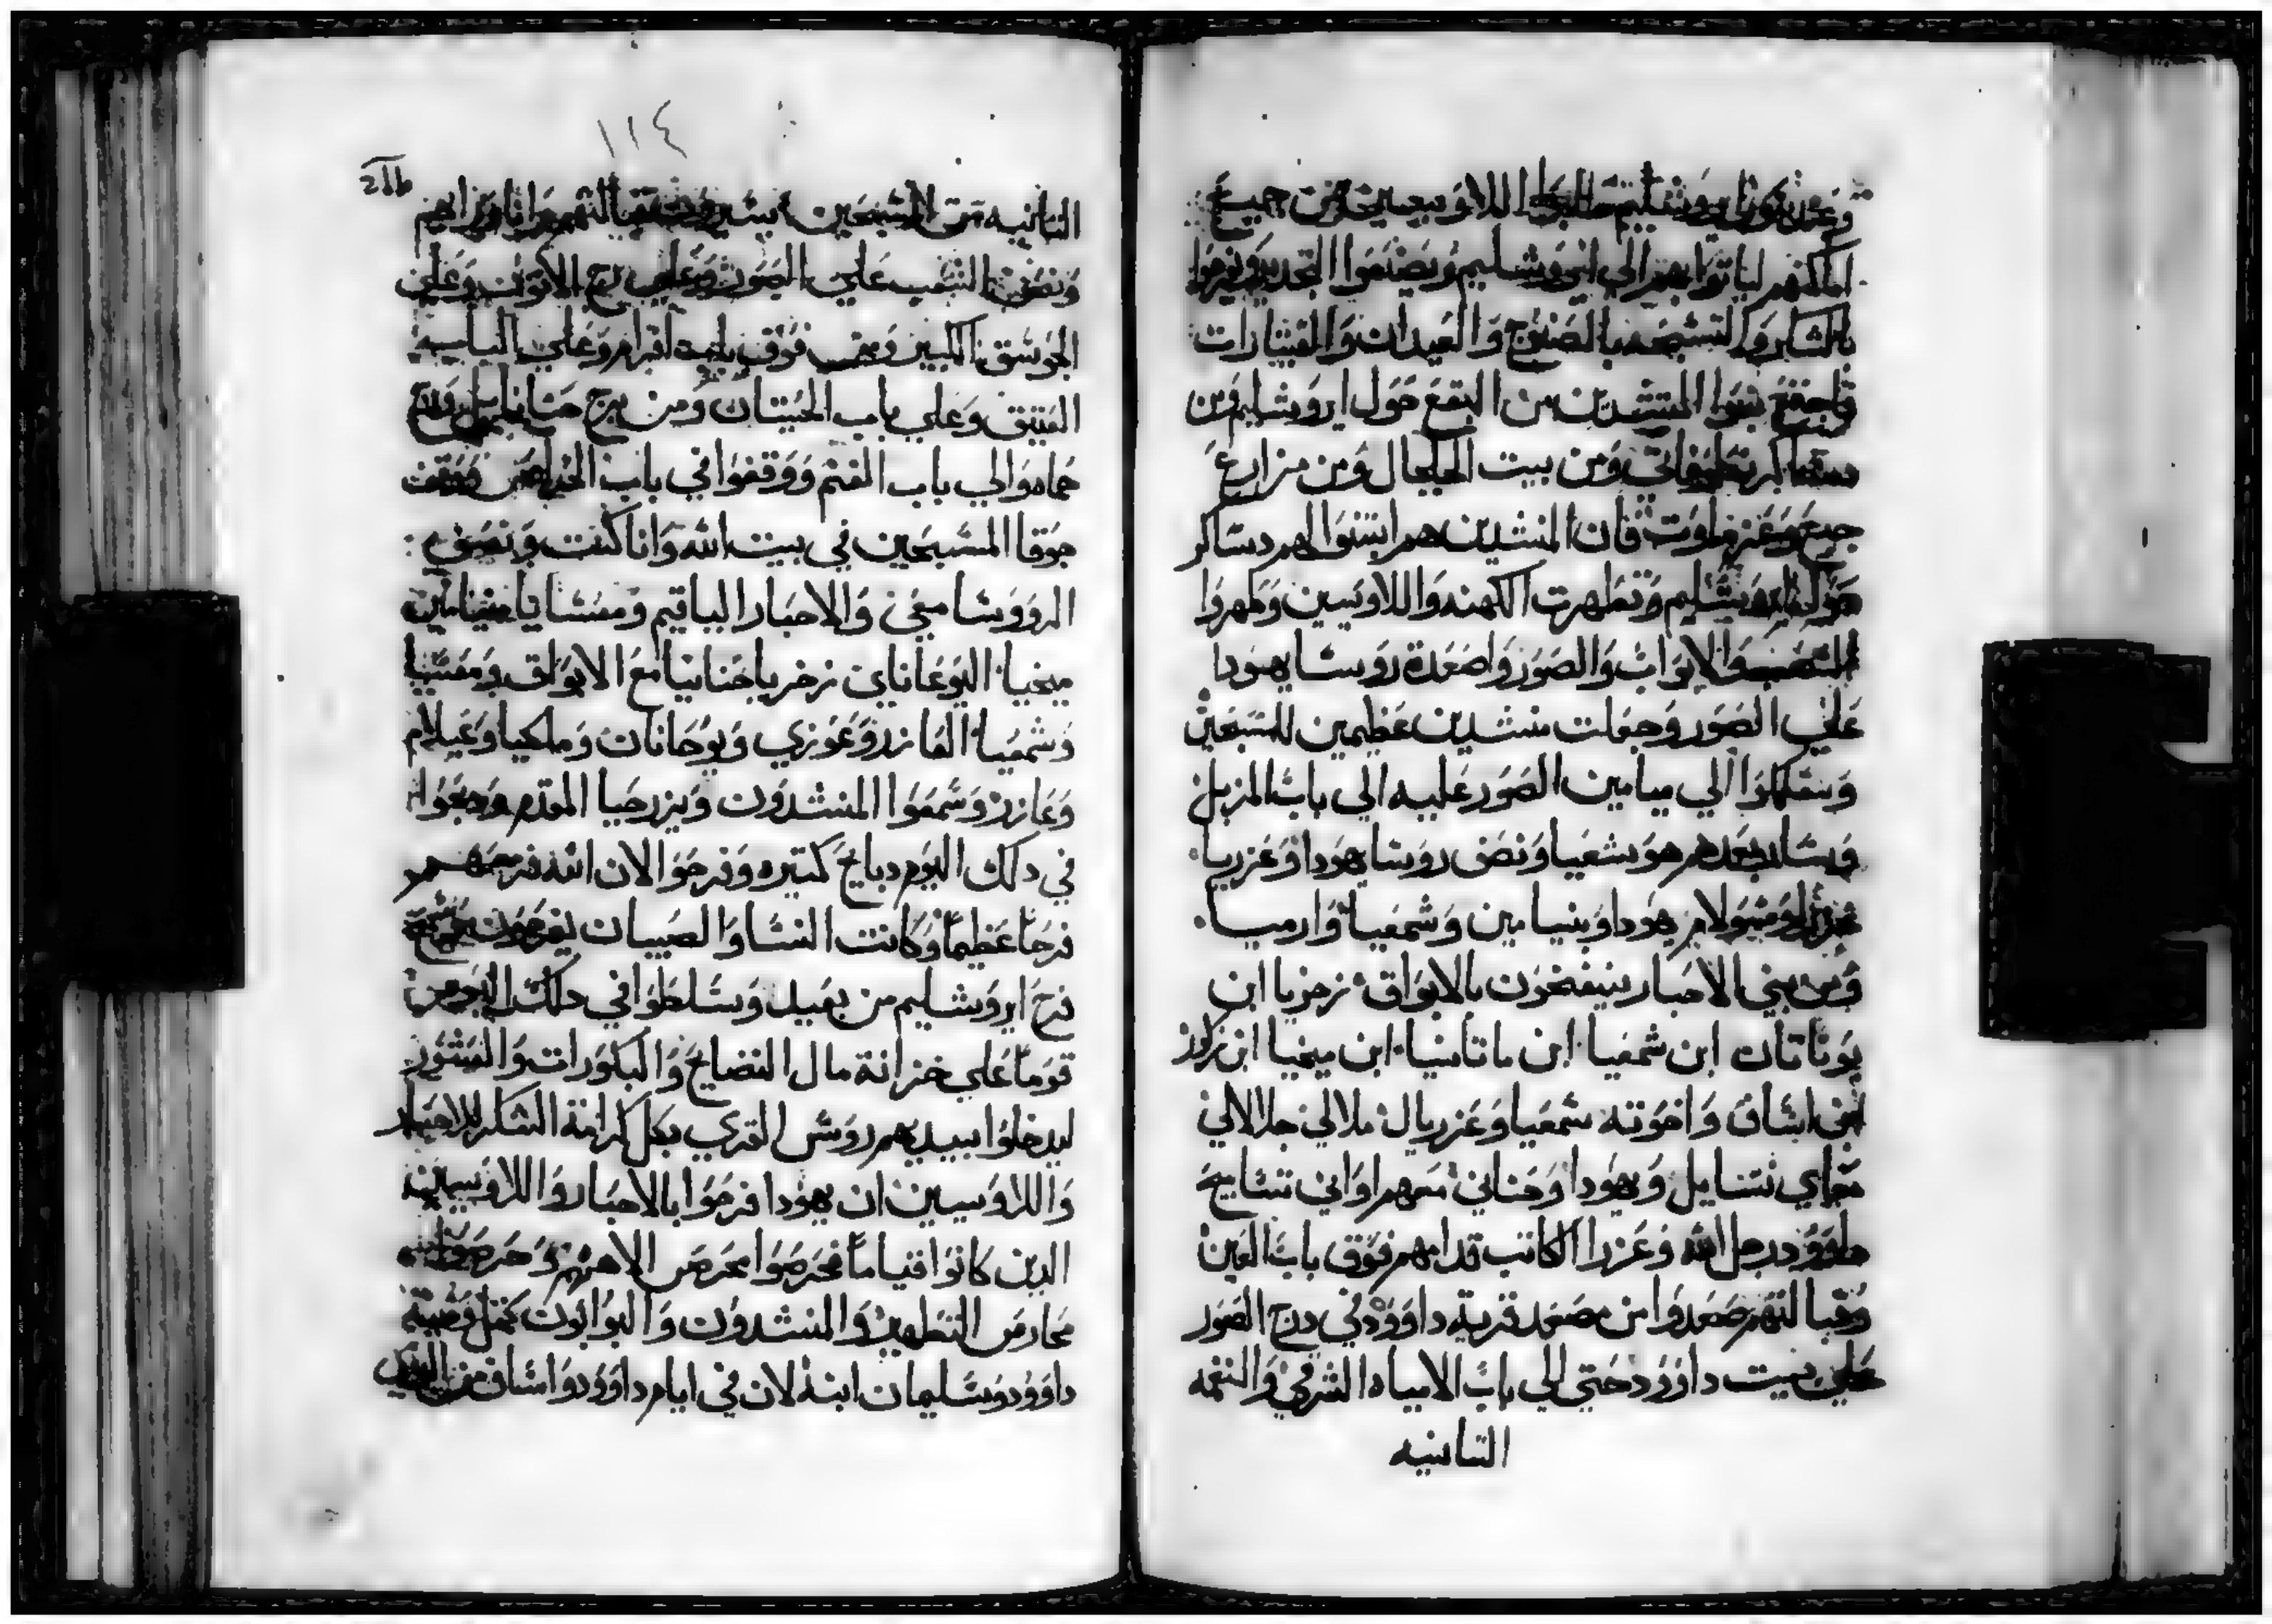 اللاويين من جميع
اماكنهم لياتوا بهم الي ايروشليم ويصنعوا التجديد
بالشكر والتسبحه بالصنوج والعيدان والقيتارات
فاجتمع بنوا المنشدين من البقع حول ايروشليم ومن
دساكر ومن بيت الجلجال ومن مزارع
جبع فان المنشدين هم ابتنوا لهم دساكر
حول ايروشليم وتطهرت الكهنه واللاويين وطهروا
الشعب والابواب والصور واصعدة روسا يهودا
علي الصور وجعلت منشدين عظيمين للسبحين
وسلكوا الي ميامين الصور عليه الي باب المزبل
وسار بعدهم هوشعيا ونصف روسا يهودا وعزريا
عزرا ومشولام يهودا وبنيامين وشمعيا وارميا
ومن بني الاحبار ينفخون بالابواق زخريا ابن
يوناتان ابن شمعيا ابن ماتانيا ابن ميخيا ابن زكور
ابن اساف واخوته شمعيا وعزريال ملالي جلالاي
معاي نتنايل ويهودا وحناني معهم اواني تسابيح
داوود رجل الله وعزرا الكاتب قدامهم فوق باب العين
وقبالتهم صعدوا من مصعد قرية داوود في درج الصور
علي بيت داوود حتي الي باب الامياه الشرقي والنغمه
التانيه
١١٤
التانيه من المسبحين وانا وراهم
ونصف الشعب علي الصور وعلي برج الاتون وعلي
الجوسق الكبير ومن فوق باب افرام وعلي الباب
العتيق وعلي باب الحيتان ومن برج حنانايل وبرج
حامو الي باب الغنم ووقفوا في باب ووقف
جوقا المسبحين في بيت الله وانا كنت ونصف
الروسا معي والاحبار الياقيم ومعسايا منيامين
ميخيا اليوعاناي زخريا حنانيا مع الابواق ومعسيا
وشمعيا العازر وعوزي ويوحانان وملكيا وعيلام
وعازر وسمعوا المنشدون ويزرحيا المقدم ودبحوا
في دلك اليوم دبايح كتيره وفرحوا لان الله فرحهم
فرحا عظيما وكانت النسا والصبيان يفرحون
فرح ايروشليم من بعيد وسلطوا في دلك اليوم
قوما علي خزانة مال النضايح والبكورات والعشور
ليدخلوا بيديهم روس القري بكل كرامة الشكر للاحبار
واللاويين ان يهودا فرحوا بالاحبار واللاويين
الدين كانوا قياما فحرصوا محرص الاههم وحرصوا
محارص التطهير والمنشدون والبوابون كمتل وصية
داوود وسليمان ابنه لان في ايام داوود واساف من